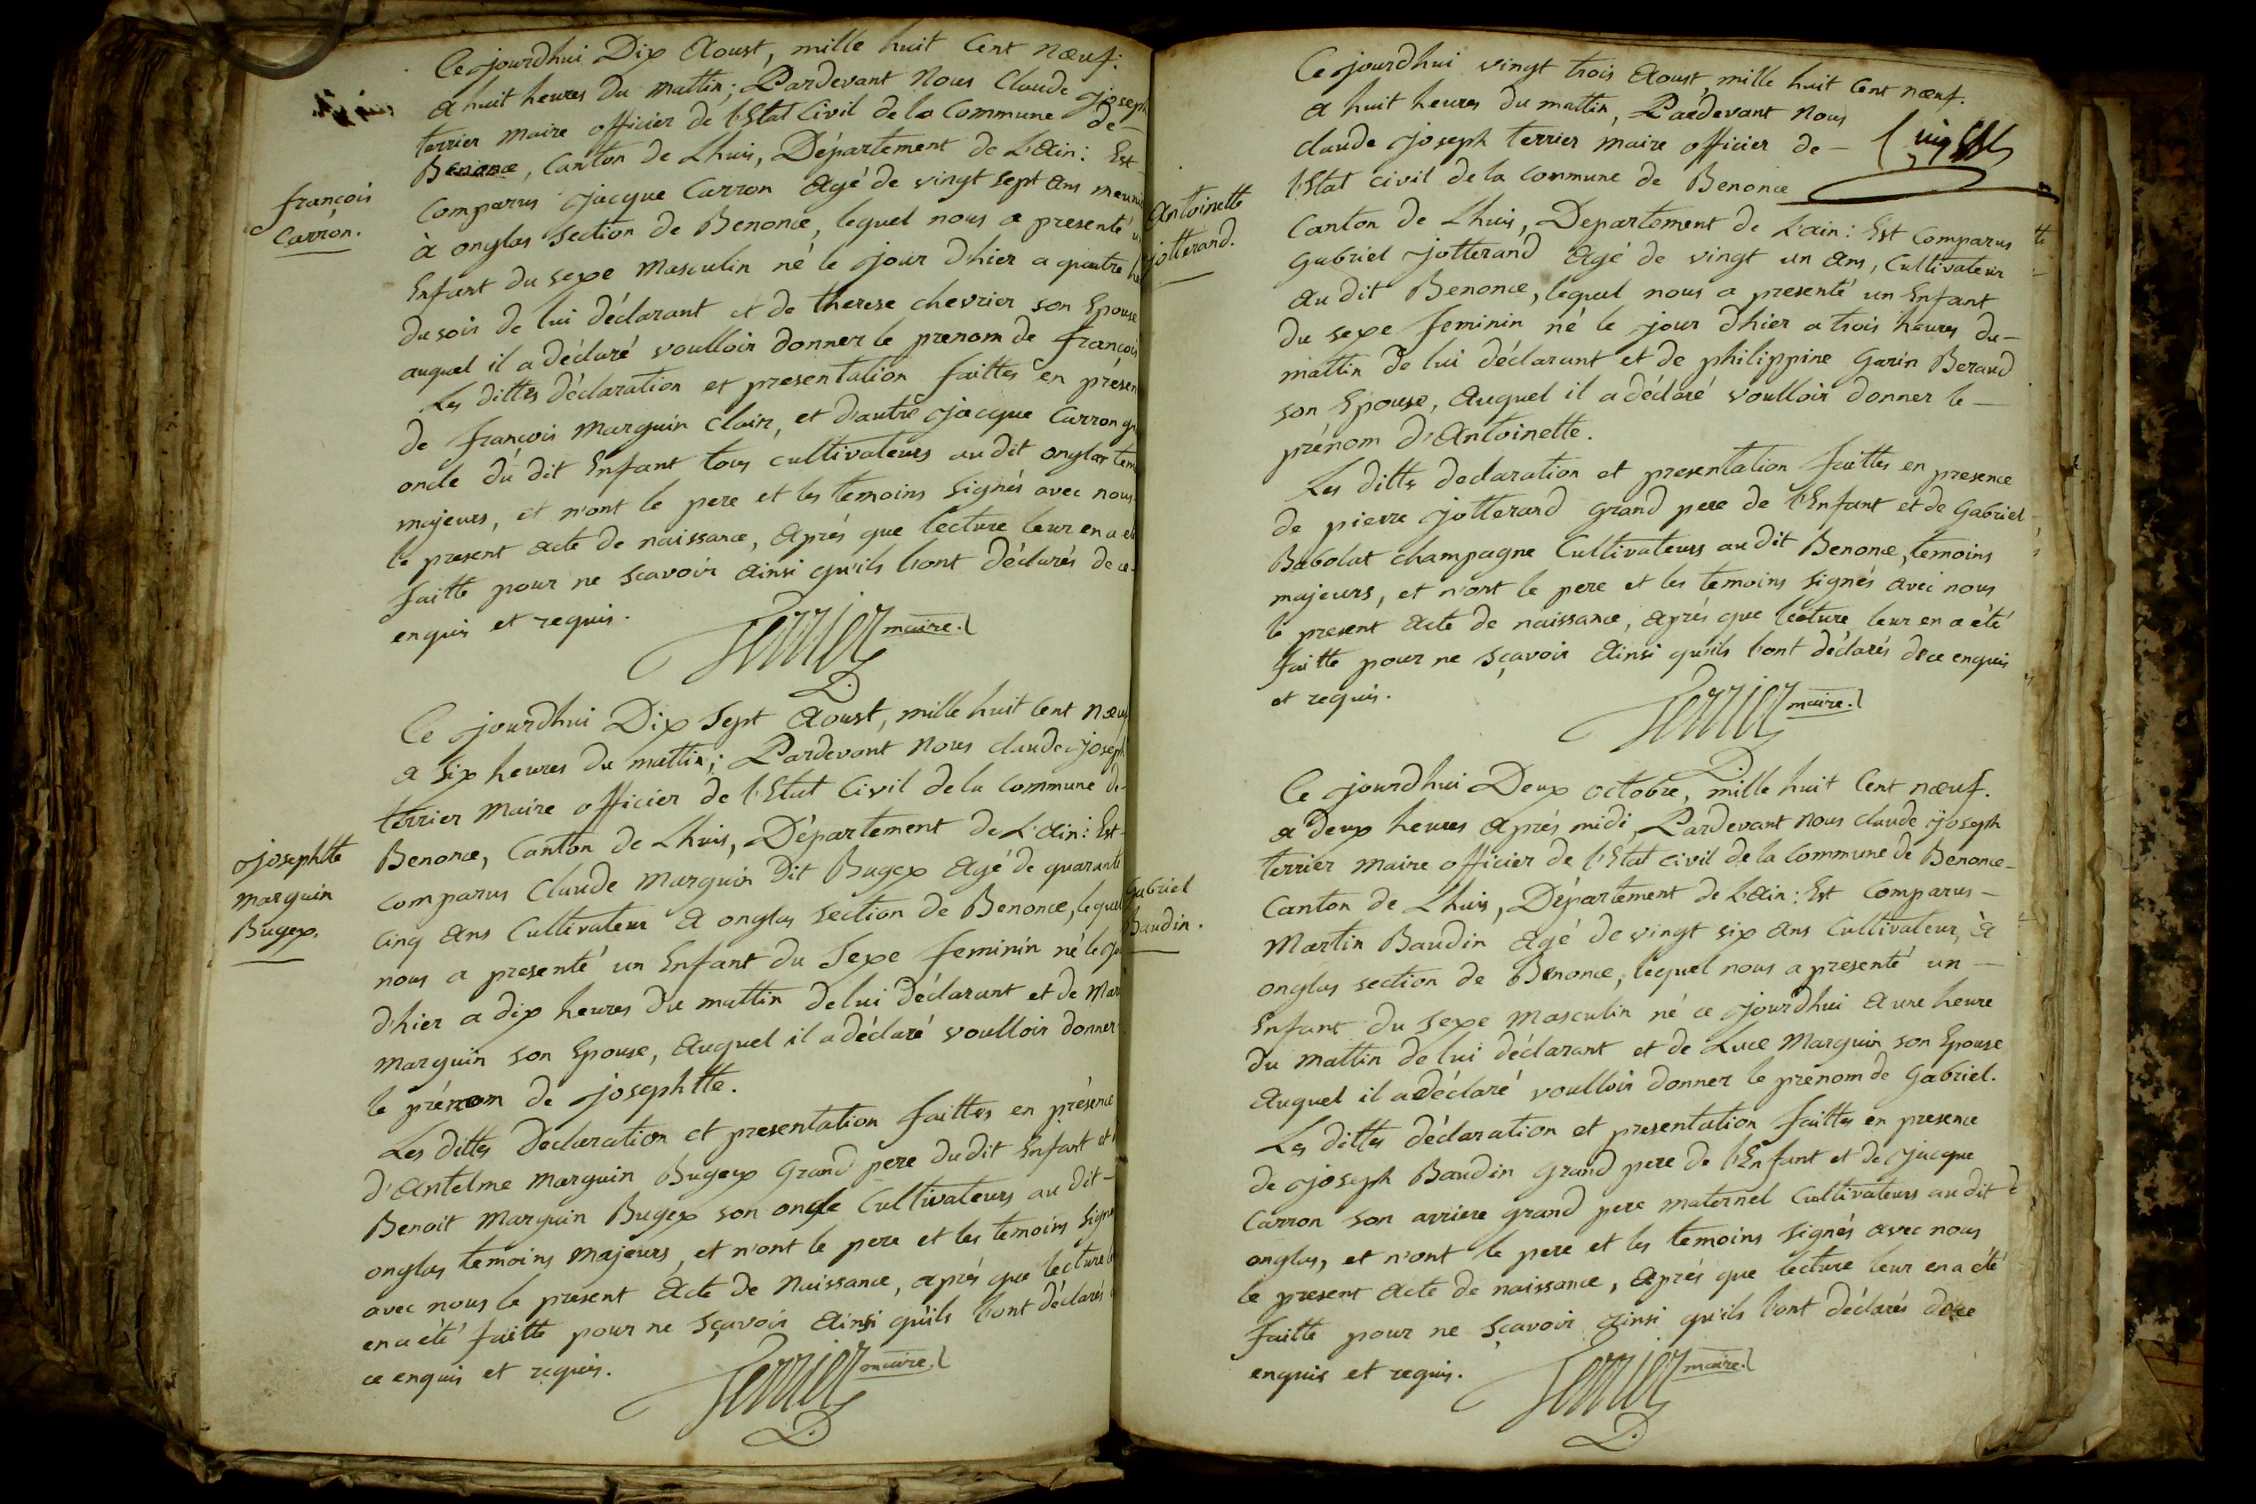 Ce jourdhui Dix Aoust, mille huit Cent nœuf.
a huit heures du mattin; Pardevant Nous Claude joseph
terrier Maire officier de l'Etat Civil de la Commune de
Benonce, Canton de Lhuis, Département de L'ain: Est
françois
Carron.
Comparus jacque Carron Agé de vingt sept ans meunier
à onglas section de Benonce, lequel nous a presenté un
Enfant du sexe Masculin né le jour d'hier a quatre
du soir de lui déclarant et de therese chevrier son Epouse
auquel il a déclaré voulloir donner le prenom de françois
Les dittes déclaration et presentation faittes en présen
de françois Marguin Clair, et d'autre jacque Carron
oncle du dit Enfant tous cultivateurs au dit onglas
majeurs, et n'ont le pere et les temoins signés avec nous
le present acte de naissance, Après que lecture leur en a
faitte pour ne sçavoir ainsi qu'ils l'ont déclarés de ce
enquis et requis.
Terrier maire.
Ce jourdhui Dix Sept Aoust, mille huit Cent Nœuf
a Six heures du mattin; Pardevant Nous claude joseph
terrier Maire officier de l'Etat Civil de la Commune de
Benonce, Canton de Lhuis, Département de L'ain: Est
josephtte
marguin
Bugex.
comparus Claude Marguin Dit Bugex Agé de quarante
cinq ans Cultivateur A onglas section de Benonce, lequel
nous a presenté un Enfant du Sexe feminin né le
d'hier a dix heures du mattin de lui déclarant et de
Marguin son Epouse, Auquel il a déclaré voulloir donner
le prénom de josephtte.
Les dittes Declaration et presentation faittes en présence
d'Antelme Marguin Bugex Grand pere du dit Enfant et
Benoit Marguin Bugex son oncle Cultivateurs au dit
onglas temoins Majeurs, et n'ont le pere et les temoins signé
avec nous le present Acte de Naissance, après que lecture
en a été faitte pour ne Sçavoir Ainsi qu'ils l'ont déclarés
ce enquis et requis.
Terrier maire.
Ce jourdhui vingt trois Aoust, mille huit Cent nœuf.
a huit heures du mattin, Pardevant Nous
claude joseph terrier Maire officier de
l'Etat civil de la Commune de Benonce
Antoinette
jotterand.
Canton de Lhuis, Departement de L'ain: Est Comparus
Gabriel jotterand Agé de vingt un Ans, Cultivateur
au dit Benonce, lequel nous a presenté un Enfant
du sexe feminin né le jour d'hier a trois heures du
mattin de lui déclarant et de philippine Garin Beraud
son Epouse, Auquel il a déclaré voulloir donner le
prénom d'Antoinette.
Les dittes declaration et presentation faittes en presence
de pierre jotterand grand pere de l'Enfant et de Gabriel
Babolat champagne Cultivateurs au dit Benonce, temoins
majeurs, et n'ont le pere et les temoins signés Avec nous
le present Acte de naissance, après que lecture leur en a été
faitte pour ne sçavoir Ainsi qu'ils l'ont déclarés de ce enquis
et requis.
Terrier maire.
Ce jourdhui Deux octobre, mille huit Cent nœuf.
a Deux heures Après midi, Pardevant nous claude joseph
terrier Maire officier de l'Etat civil de la Commune de Benonce
Canton de Lhuis, Département de L'ain: Est Comparus
Gabriel
Baudin.
Martin Baudin Agé de vingt six Ans Cultivateur, à
onglas section de Benonce, lequel nous a presenté un
Enfant du Sexe Masculin né ce jourd'hui A une heure
du Mattin de lui déclarant et de Luce Marguin son Epouse
Auquel il a déclaré voulloir donner le prenom de Gabriel.
Les dittes déclaration et presentation faittes en presence
de joseph Baudin grand pere de l'Enfant et de jacque
Carron son arriere grand pere maternel Cultivateurs au dit
onglas, et n'ont le pere et les temoins signés avec nous
le present Acte de naissance, Après que lecture leur en a été
faitte pour ne sçavoir Ainsi qu'ils l'ont déclarés de ce
enquis et requis.
Terrier maire.